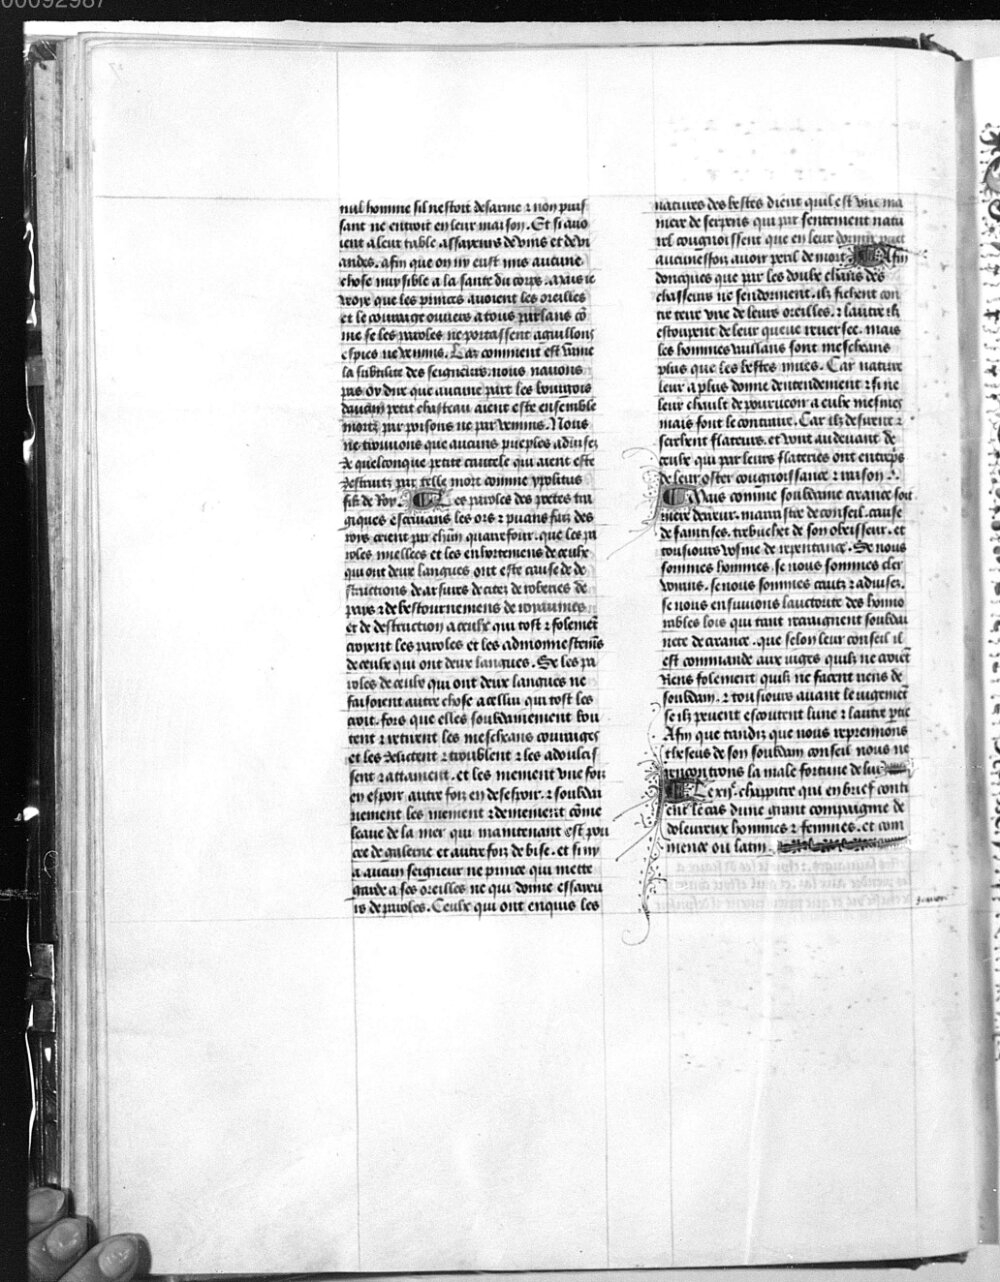 00092987
nul homme sil nestoit desarme ⁊ non puis
sant ne entroit en leur maison. Et si auo
ient a leur table assaieurs de vins et de vi
andes. afin que on ny eust mis aucune
chose nuysible a la sante du corps. Mais ie
croye que les princes auoient les oreilles
et le courage ouuers a tous parlans cō
me se les paroles ne portassent aguillons
espies ne venins. Car comment est
la subtilite des seigneurs nous nauons
pas oy dire que aucune part les bourgois
daucun petit chasteau aient este ensemble
mortz par poisons ne par venins. Nous
ne trouuons que aucuns pueples aduisez
de quelconque petite cautele qui aient este
destruitz par telle mort comme ypolitus
filz de Roy. Les paroles des poetes tra
giques escriuans les ors ⁊ puans faiz des
roys crient par chūn quarrefour. que les pa
roles miellees et les enhortemens de ceulx
qui ont deux langues ont este cause de de
structions de arsures de citez de roberies de
pays ⁊ de bestournemens de royaumes
et de destruction a ceulx qui tost ⁊ folemēt
croyent les paroles et les admonnestemēs
de ceulx qui ont deux langues. Se les pa
roles de ceulx qui ont deux langues ne
faisoient autre chose a cellui qui tost les
croit. fors que elles soubdainement bou
tent ⁊ retirent les meschans courages
et les delictent ⁊ troublent ⁊ les adoulcis
sent ⁊ attament. et les meinent vne foiz
en espoir autre foiz en desespoir. ⁊ soubdai
nement les meinent ⁊ demeinent cōme
leaue de la mer qui maintenant est pou
cee de galerne et autre foiz de bise. et si ny
a aucun seigneur ne prince qui mette
garde a ses oreilles ne qui donne essaieu
rs de paroles. Ceulx qui ont enquis les
natures des bestes dient quil est vne ma
niere de serpens qui par sentement natu
rel cougnoissent que en leur dormir puet
aucunesfoiz auoir peril de mort. Afin
doncques que par les doulx chans des
chasseurs ne sendorment. ilz fichent con
tre terre vne de leurs oreilles. ⁊ lautre ilz
estoupent de leur queue reuersee. mais
les hommes vaillans sont meschans
plus que les bestes mues. Car nature
leur a plus donne dentendement ⁊ si ne
leur chault de pourueoir a eulx mesmes
mais font le contraire. Car ilz desirent ⁊
serchent flateurs. et vont au deuant de
ceulx qui par leurs flateries ont entrepris
de leur oster cougnoissance ⁊ raison.
Mais comme soubdaine creance soit
mere derreur. marrastre de conseil. cause
de faintises. trebuchet de son obeisseur. et
tousiours voisine de repentance. Se nous
sommes hommes. se nous sommes cler
voians. se nous sommes cautz ⁊ aduisez.
se nous ensuiuons lauctorite des honno
rables lois qui tant craingnent soubdai
nete de creance. que selon leur conseil il
est commande aux iuges quilz ne croiēt
riens folement quilz ne facent riens de
soubdain. ⁊ tousiours auant le iugement
seilz peuent escoutent lune ⁊ lautre ptie
Afin que tandiz que nous reprennons
theseus de son soubdain conseil nous ne
rencontrions la male fortune de lui
Le xije. chappitre qui en brief conti
ent le cas dune grant compaignie de
doleureux hommes ⁊ femmes. et com
mence ou latin